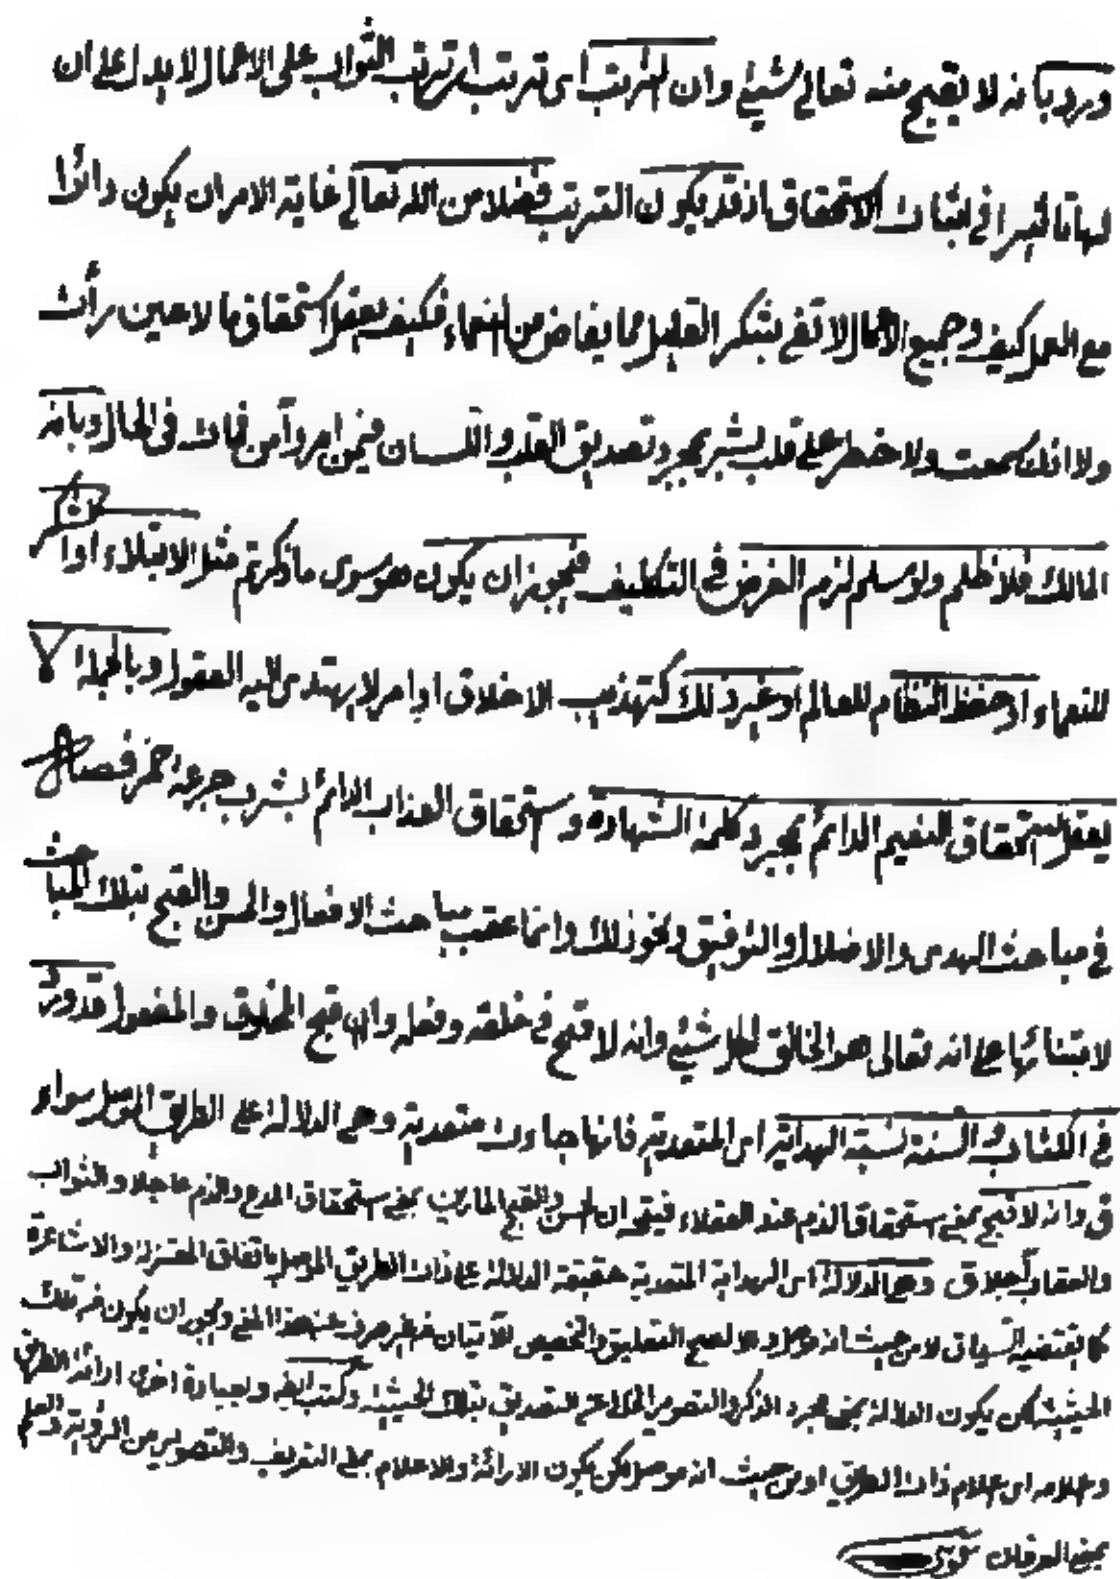 ورد بانه لا يقبح منه تعالى شيئ وان الترتب اى ترتب اى ترتب الثواب على الاعمال لا يدل على ان
لها تاثيرا فى اثبات الاستحقاق اذ قد يكون الترتب فضلا من الله تعالى غاية الامر ان يكون دائرا
مع العمل كيف وجميع الاعمال لا تفى بشكر القليل مما يفاض من النعماء فكيف يعقل استحقاق ما لا عين رأت
ولا اذن سمعت ولا خطر على قلب بشر بمجرد تصديق القلب واللسان فيمن امر وآمن فمات فى الحال وبانه
المالك فلا ظلم ولو سلم لزم الغرض فى التكليف فيجوز ان يكون هو سوى ما ذكرتم مثل الابتلاء او
للنعماء او حفظ النظام للعالم او غير ذلك كتهذيب الاخلاق او امر لا يهتدى اليه العقول وبالجملة لا
يعقل استحقاق النعيم الدائم بمجرد كلمة الشهادة واستحقاق العذاب الدائم بشرب جرعة خمر فصل
فى مباحث الهدى والاضلال والتوفيق ونحو ذلك وانما عقب مباحث الافعال والحسن والقبح بتلك المباحث
لابتنائها على انه تعالى هو الخالق لكل شيئ وانه لا قبح فى خلقه وفعله وان قبح المخلوق والمفعول قد ورد
فى الكتاب والسنة نسبة الهداية اى المتعدية فانها جاءت متعدية وهى الدلالة على الطريق الموصل سواء
وانه لا قبح بمعنى استحقاق الذم عند العقلاء فيتجه ان الحسن والقبح بمعنى استحقاق المدح والذم عاجلا والثواب
والعقاب وهى الدلالة اى الهداية المتعدية حقيقة الدلالة على ذات الطريق الموصل باتفاق المعتزلة والاشاعرة
كما يقتضيه السياق لا من حيث انه موصل والا لصح التعليق هذا المعنى ويجوز ان يكون تلك
الحيثية لكن يكون الدلالة بمعنى مجرد الذكر والتصوير التصديق بتلك الحيثية وكتب ايضا وبعبارة اخرى اراءة الطريق
واعلامه اى اعلام ذات الطريق او من حيث انه موصل لكن يكون الاراءة والاعلام بمعنى التعريف والتصوير من الرؤية والعلم
بمعنى العرفان